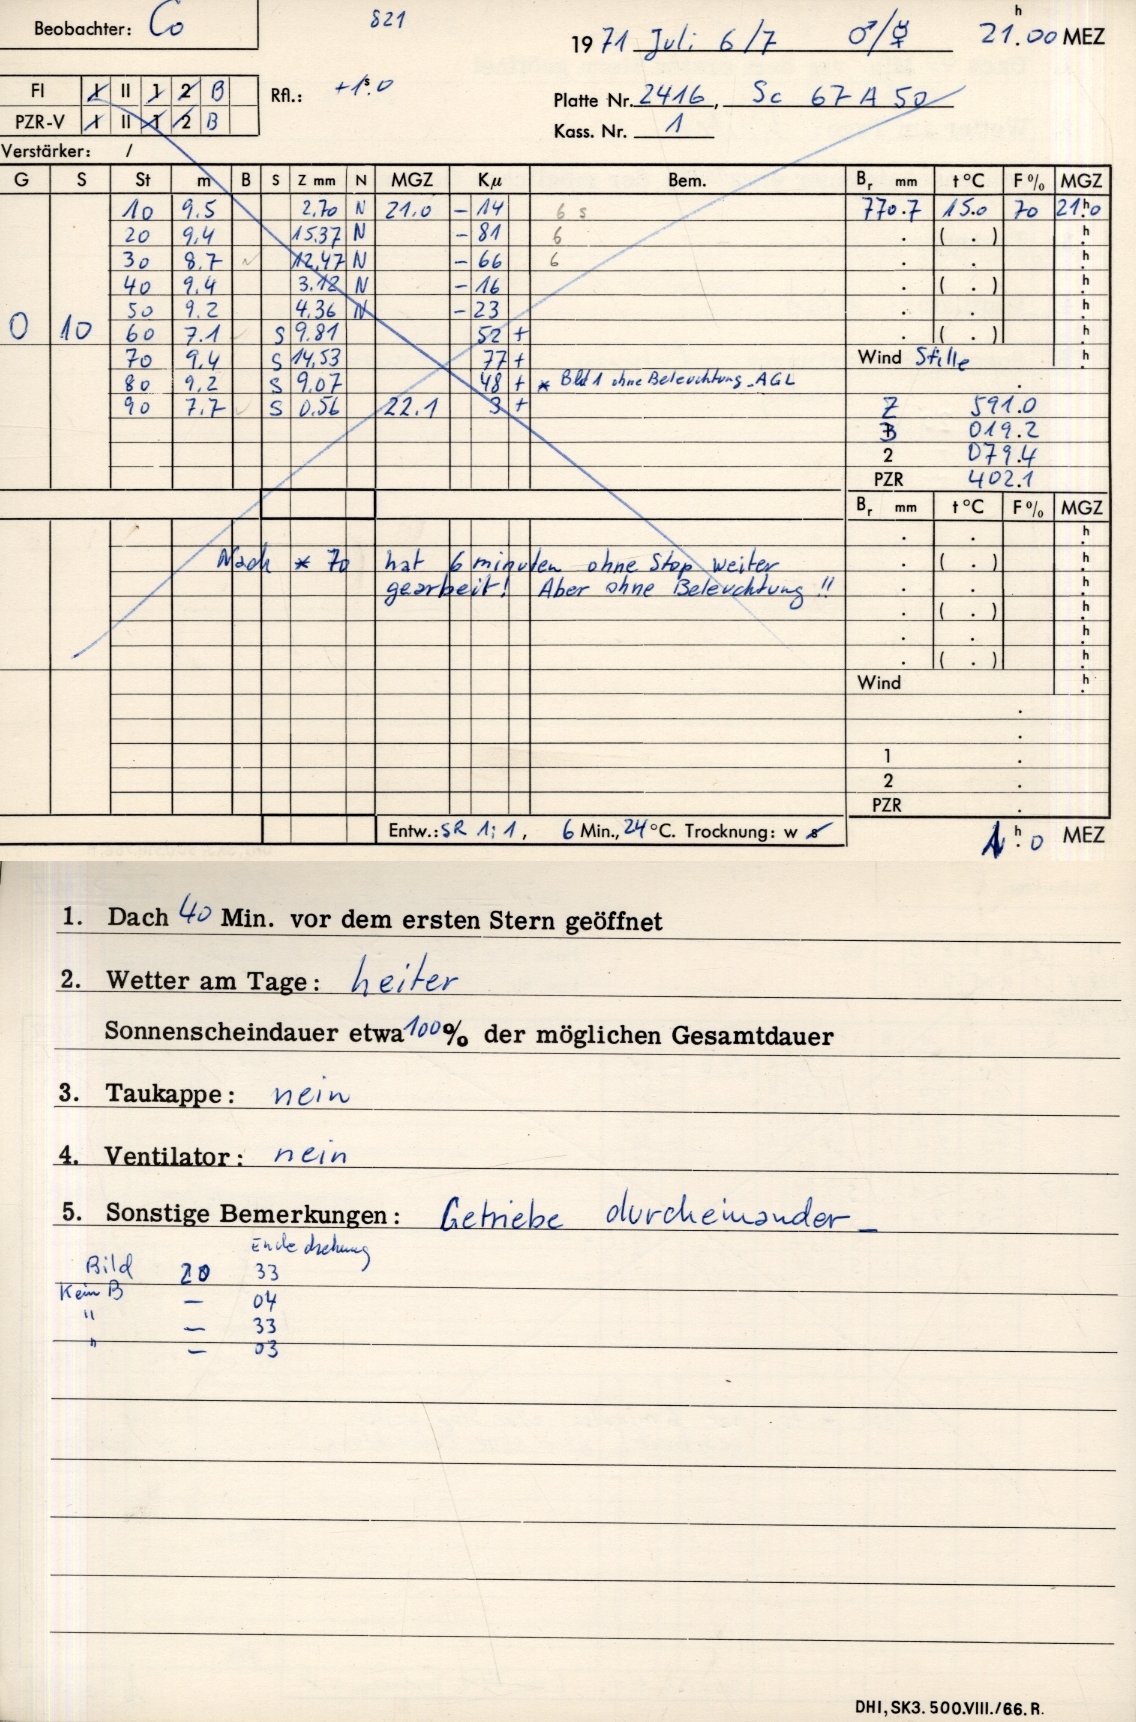 Beobachter: Co
821
19 71 Juli 6/7 ♂/☿ 21.00 h MEZ
FI 1 II 1 2 B
Rfl.: +1s.0
Platte Nr. 2416, Sc 67 A 50
PZR-V 1 II 1 2 B
Kass. Nr. 1
Verstärker: /
G S St m B S Z mm N MGZ Kμ Bem. Br mm t°C F% MGZ
10 9.5 2.70 N 21.0 - 14 6 s 770.7 15.0 70 21h.0
20 9.4 15.37 N - 81 6 . ( . ) h.
30 8.7 12.47 N - 66 6 . . h.
40 9.4 3.12 N - 16 . ( . ) h.
50 9.2 4.36 N - 23 . . h.
0 10 60 7.1 S 9.81 52 + . ( . ) h.
70 9.4 S 14.53 77 + Wind Stille h.
80 9.2 S 9.07 48 + * Bild 1 ohne Beleuchtung - AGL .
90 7.7 S 0.56 22.1 3 + Z 591.0
B 019.2
2 079.4
PZR 402.1
Br mm t°C F% MGZ
. . h.
Nach * 70 hat 6 minuten ohne Stop weiter . ( . ) h.
gearbeit! Aber ohne Beleuchtung !! . . h.
. ( . ) h.
. . h.
. ( . ) h.
Wind h.
.
.
1 .
2 .
PZR .
Entw.: SR 1:1, 6 Min., 24 °C. Trocknung: w s
1 h. 0 MEZ
1. Dach 40 Min. vor dem ersten Stern geöffnet
2. Wetter am Tage: heiter
Sonnenscheindauer etwa 100 % der möglichen Gesamtdauer
3. Taukappe: nein
4. Ventilator: nein
5. Sonstige Bemerkungen: Getriebe durcheinander -
Ende drehung
Bild 20 33
Kein B — 04
" — 33
" — 03
DHI, SK3. 500.VIII./66. R.